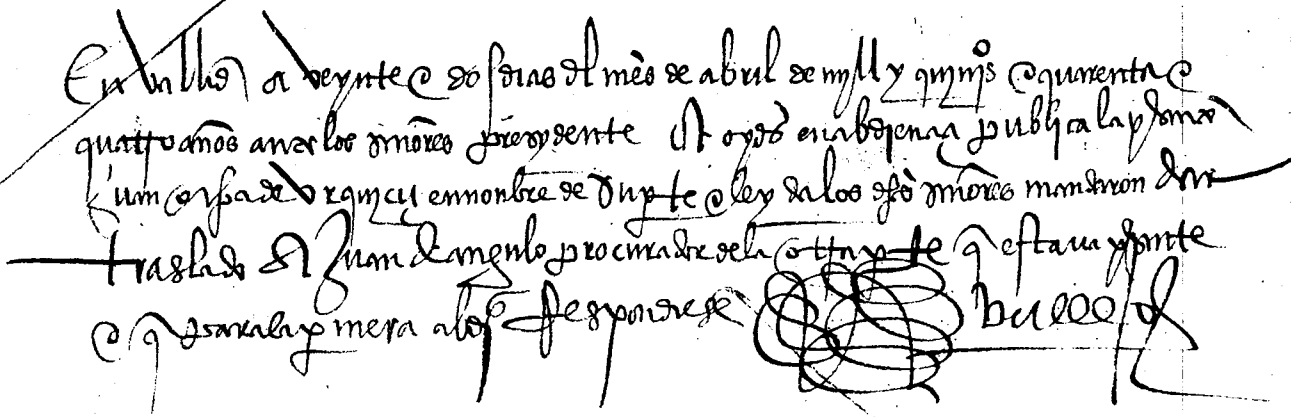 En Vallid a veynte e dos dias del mes de abril de myll y quinyos e quarenta e
quatro años ante los señores presydente e oydes en abdiençia publica la presento
juan ochoa de Vrquiçu en nonbre de su pte e leyda los dhos señores mandaron dar
traslado a Juan de angulo procurador de la otra pte q estava presente
e q para la primera abdiª Respondiese